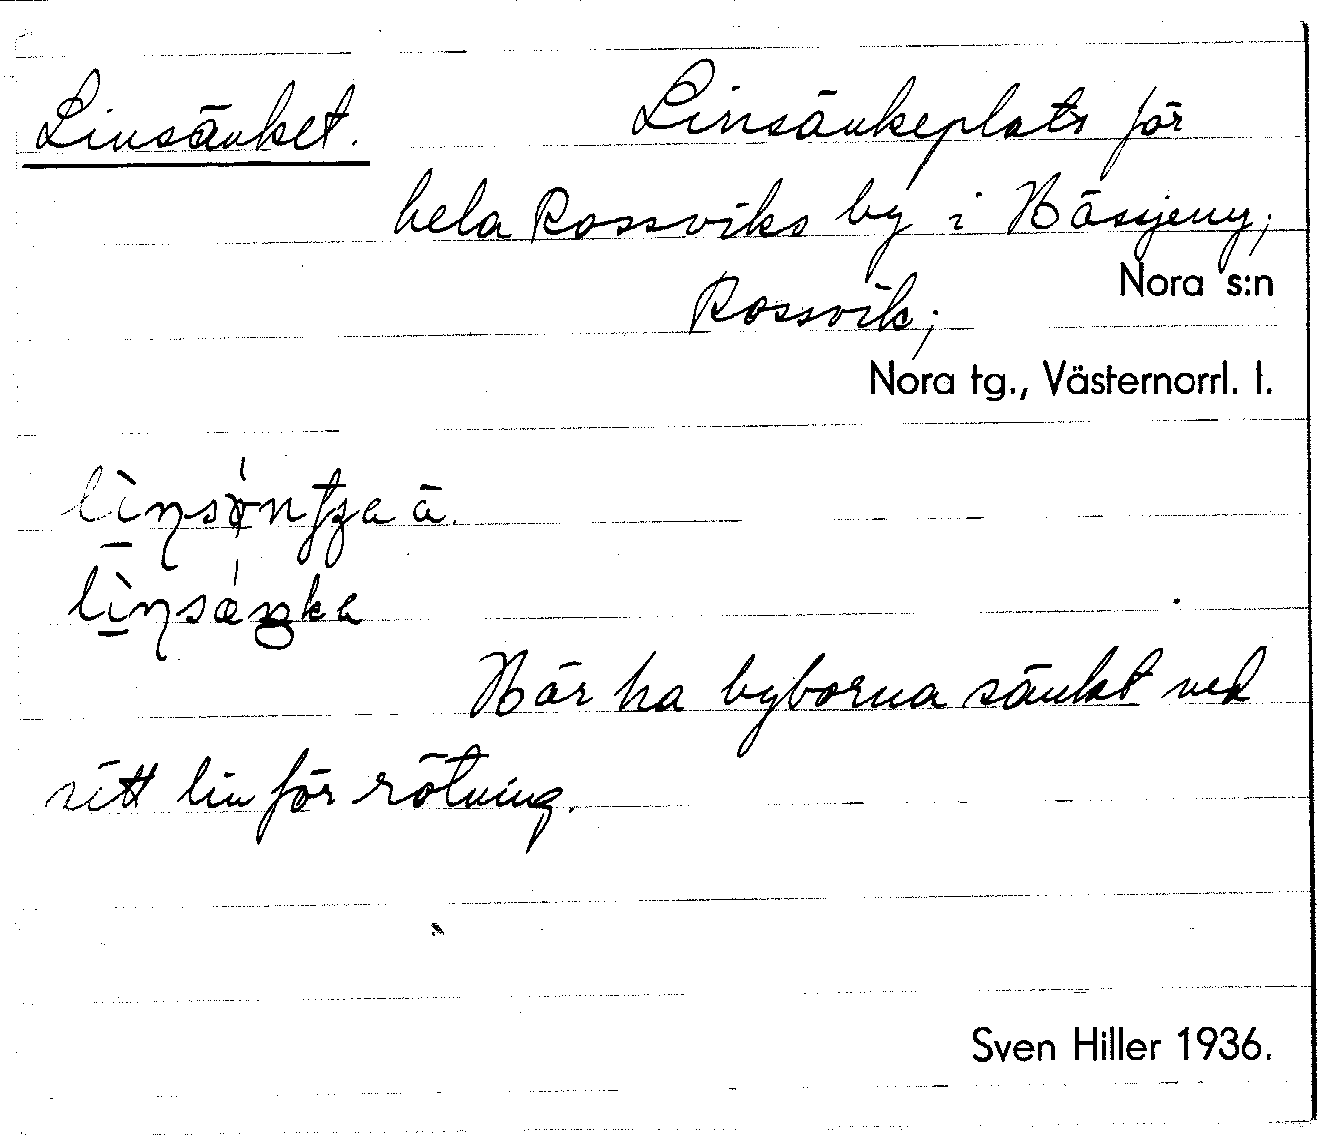 Linsänket. Linsänkeplats för
hela Rossviks by i Hässjeny;
Nora s:n
Rossvik;
Nora tg., Västernorrl. l.
ä.
Här ha byborna sänkt ned
sitt lin för rötning.
Sven Hiller 1936.